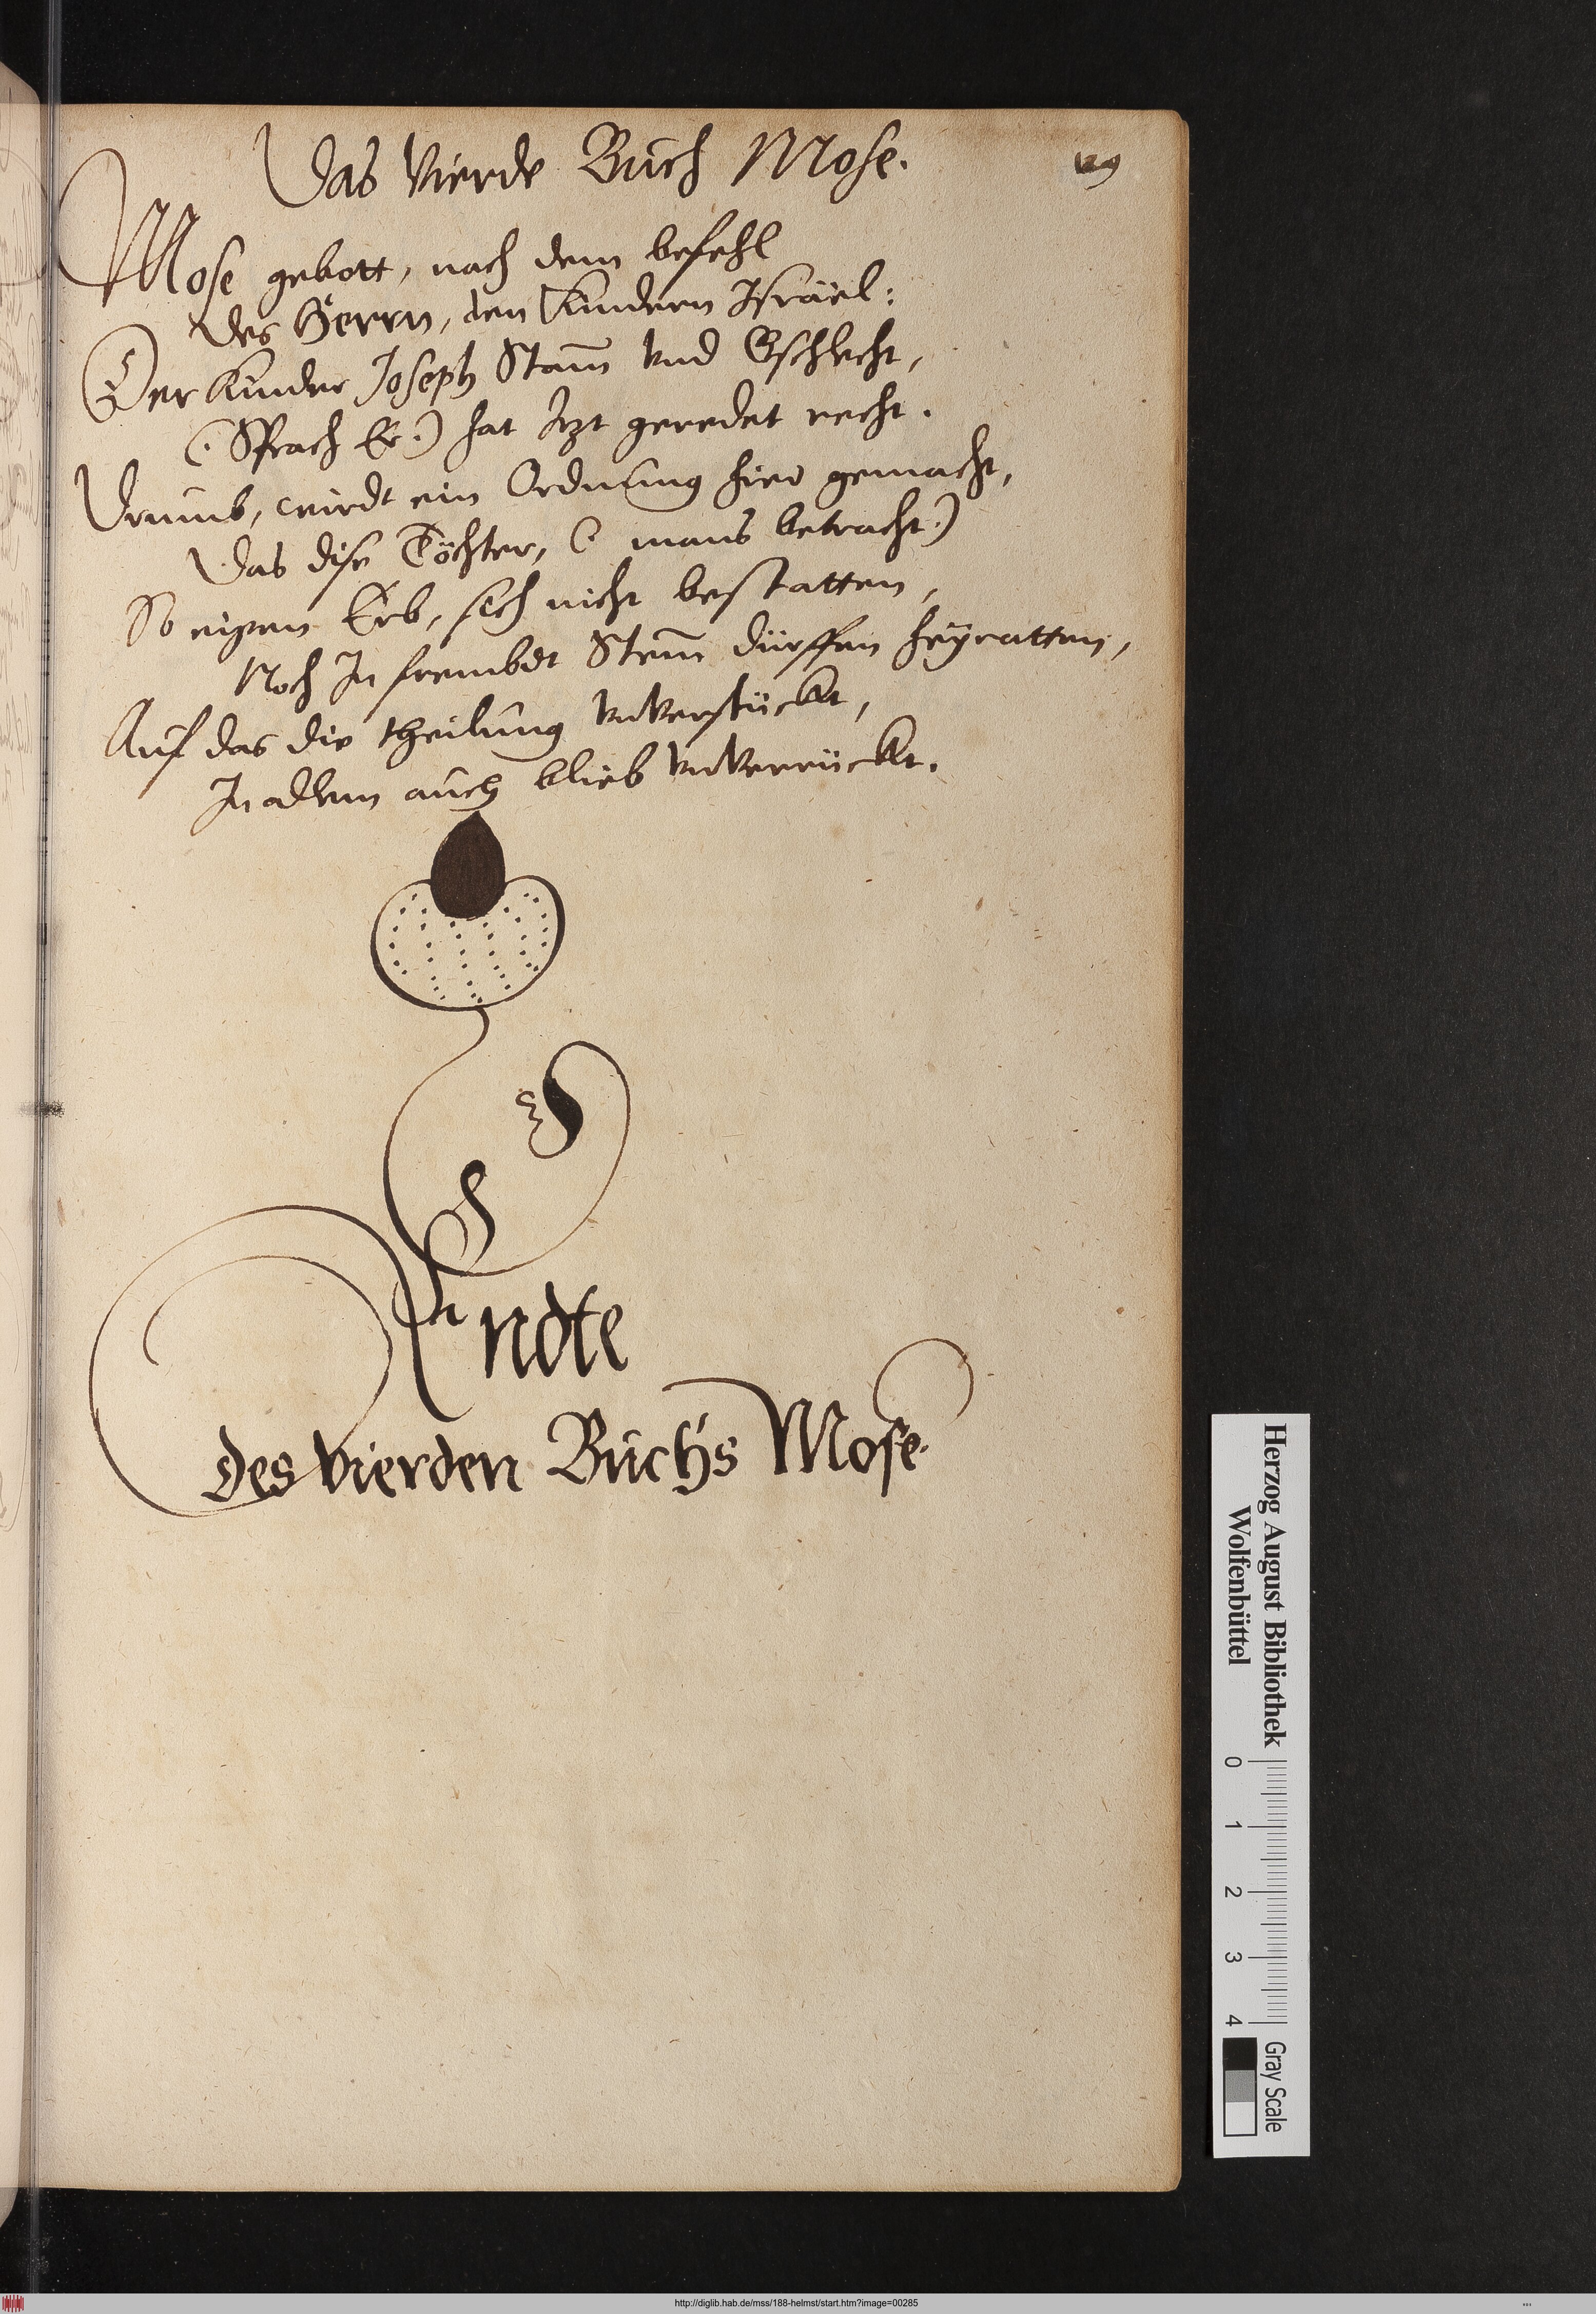 Das Vierde Buch Mose.
129
Mose gebott, nach dem befehl
des Herrn, den Kindern Israel:
Der Kinder Joseph Stam̄ vnd Gschlecht,
(. Sprach Er.) hat Jtzt geredet recht.
Drumb, wirdt ein Ordnung hier gemacht,
Das dise Töchter, (. mans betracht.)
So eigen Erb, sich nicht bestatten,
Noch Jn frembdt Stem̄ dürffen heÿratten,
Auf das die theilung vnverstückt,
Jn allem auch blieb vnverrückt.
Endte
des Vierden Buchs Mose.
Herzog August Bibliothek
Wolfenbüttel
0 1 2 3 4
Gray Scale
http://diglib.hab.de/mss/188-helmst/start.htm?image=00285